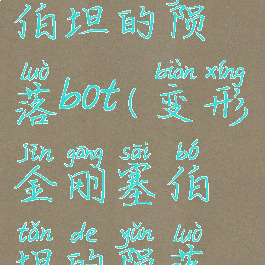 伯坦的陨
luò biàn xíng
落bot(变形
jīn gāng sāi bó
金刚塞伯
tǎn de yǔn luò
坦的陨落